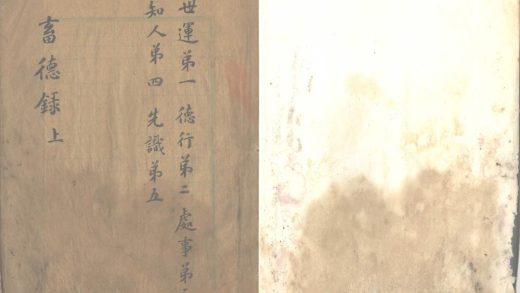 世運第一 德行第二 處事第
知人第四 先識第五
畜德錄 上